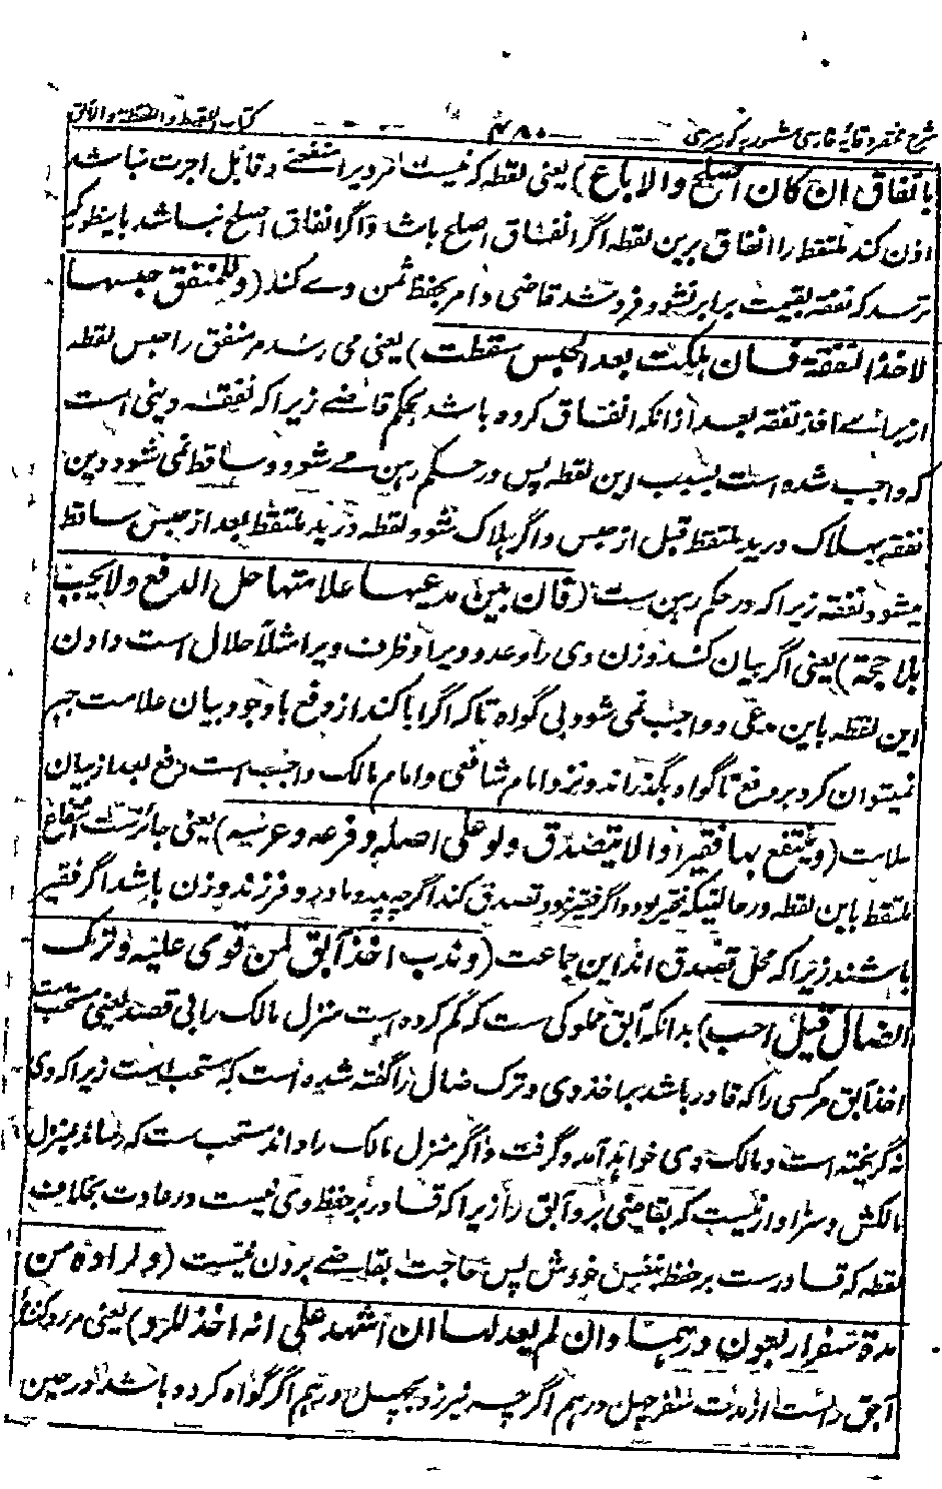 شرح مختصر وقایه فارسی مشهور به کور میری ۴۸۰ کتاب اللقیط واللقطة والآبق
باتفاق ان کان اصلح والا باع) یعنی لقطه که نیست مر ویرا منفعتے و قابل اجرت نباشد
اذن کند ملتقط را انفاق برین لقطه اگر انفاق اصلح باشد و اگر انفاق اصلح نباشد باینطور که
ترسد که نفقه بقیمت برابر نشود فروشد قاضی و امر بحفظ ثمن وے کند (وللمنفق حبسها
لاخذ النفقة فان هلکت بعد الحبس سقطت) یعنی می رسد مر منفق را حبس لقطه
از برائے اخذ نفقه بعد ازانکه انفاق کرده باشد بحکم قاضے زیرا که نفقه دینی است
که واجب شده است بسبب این لقطه پس در حکم رهن مے شود و ساقط نمی شود دین
نفقه بهلاک در ید ملتقط قبل از حبس و اگر هلاک شود لقطه در ید ملتقط بعد از حبس ساقط
میشود نفقه زیرا که در حکم رهن ست (فان بین مدعیها علامتها حل الدفع ولا یجب
بلا حجة) یعنی اگر بیان کند وزن وی را و عدد ویرا و ظرف ویرا مثلا حلال است دادن
این لقطه باین مدعی و واجب نمی شود بی گواه تا که اگر ابا کند از دفع باوجود بیان علامت جبر
نمیتوان کرد بر دفع تا گواه بگذراند و نزد امام شافعی و امام مالک واجب است دفع بعد از بیان
علامت (وینتفع بها فقیرا والا یتصدق ولو علی اصله وفرعه وعرسه) یعنی جائزست انتفاع
ملتقط باین لقطه در حالتیکه فقیر بود و اگر فقیر نبود تصدق کند اگرچه پدر و مادر و فرزند و زن باشد اگر فقیر
باشند زیرا که محل تصدق اند این جماعت (وندب اخذ آبق لمن قوی علیه وترک
الضال قیل احب) بدانکه آبق مملوکی ست که گم کرده است منزل مالک را بی قصد یعنی مستحب است
اخذ آبق مر کسی را که قادر باشد بر اخذ وی و ترک ضال را گفته شده است که مستحب است زیرا که وی
نگریخته است و مالک وی خواهد آمد و گرفت و اگر منزل مالک را داند مستحب ست که رساند بمنزل
مالکش و سزاوار نیست که بقاضی برد آبق را زیرا که قادر بر حفظ وی نیست در عادت بخلاف
لقطه که قادرست بر حفظ بنفس خودش پس حاجت بقاضے بردن نیست (ولراده من
مدة سفر اربعون درهما وان لم یعدلها ان اشهد علی انه اخذ للرد) یعنی مر رد کنندهٔ
آبق راست از مدت سفر چهل درهم اگرچه نیرزد بچهل درهم اگر گواه کرده باشد در حین